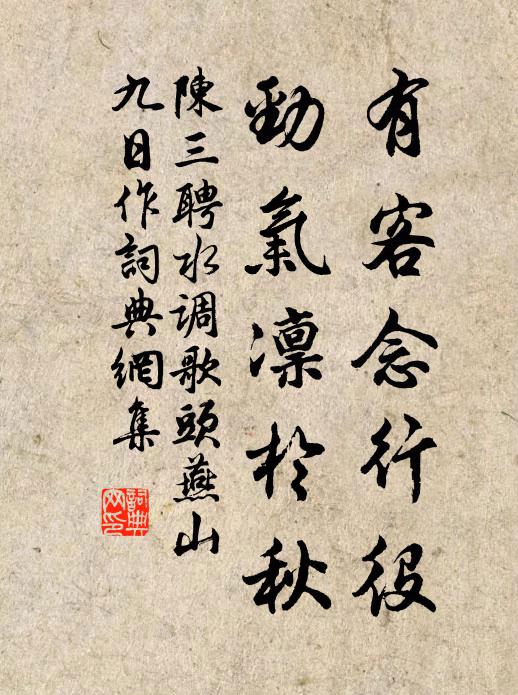 有客念行役
勁氣凛於秋
陳三聘水调歌頭燕山
九日作詞典網集
詞典
网印